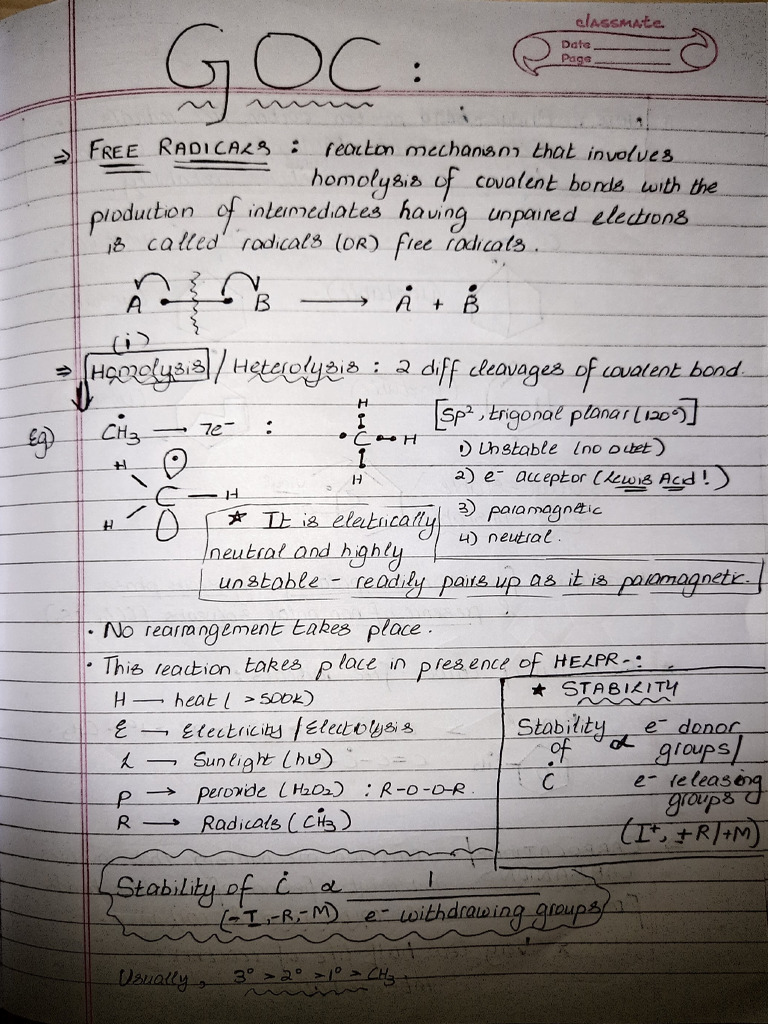 classmate
Date
Page
GOC :
⇒ FREE RADICALS : reacton mechanism that involves
homolysis of covalent bonds with the
production of intermediates having unpaired electrons
is called radicals (OR) free radicals.
A B → Ȧ + Ḃ
(i)
⇒ Homolysis / Heterolysis : 2 diff cleavages of covalent bond.
Eg) ĊH3 → 7e⁻ :
H
C H
H
[Sp², trigonal planar (120°)]
1) Unstable (no octet)
2) e⁻ acceptor (Lewis Acid!)
3) paramagnetic
4) neutral.
H
C — H
H
★ It is electrically
neutral and highly
unstable - readily pairs up as it is paramagnetic.
• No rearrangement takes place.
• This reaction takes place in presence of HELPR-:
H — heat ( >500k)
E → Electricity / Electrolysis
L → Sunlight (hν)
P → peroxide (H2O2) : R-O-O-R.
R → Radicals (ĊH3)
★ STABILITY
Stability of Ċ ∝ e⁻ donor
groups/
e⁻ releasing
groups
(I⁺, +R/+M)
Stability of Ċ ∝ 1
(-I, -R, -M) e⁻ withdrawing groups
Usually, 3° > 2° > 1° > CH3.